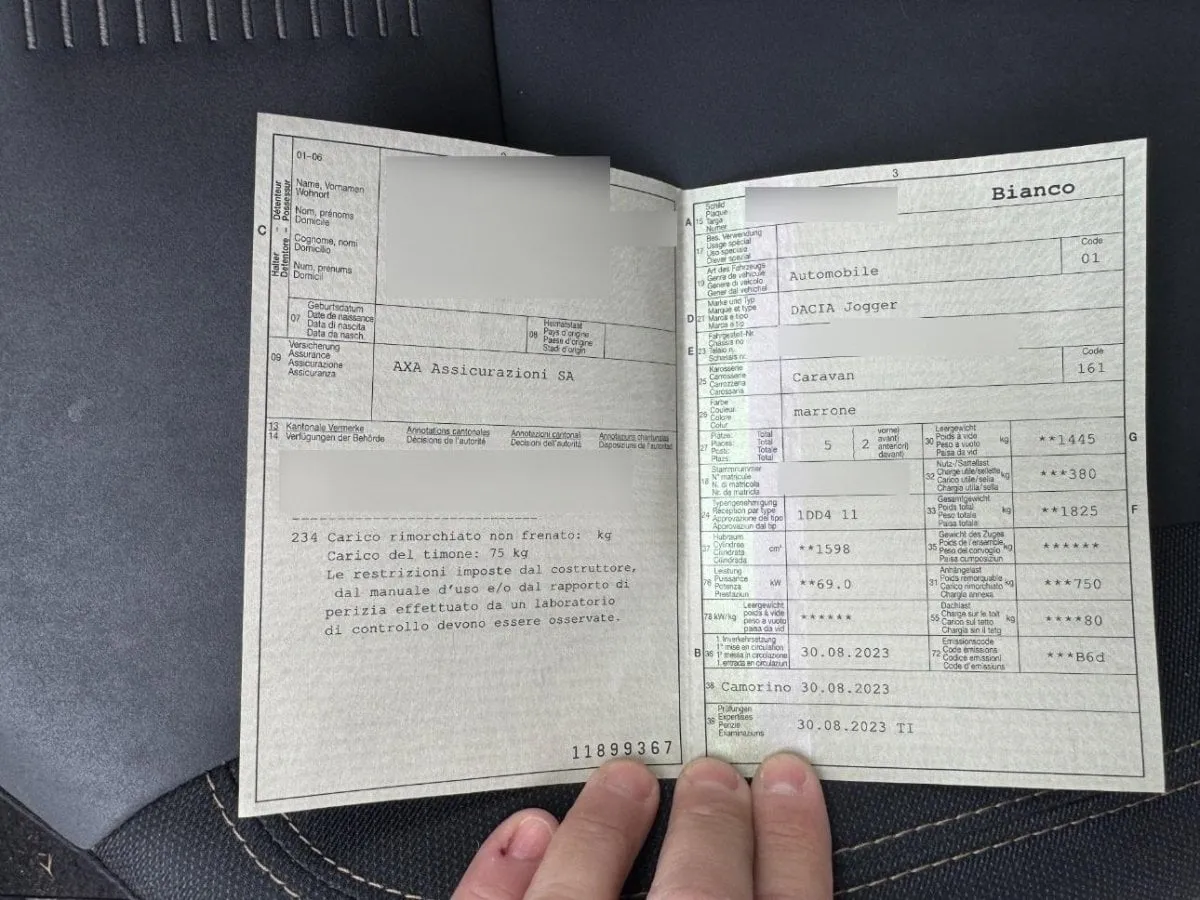 2
01-06
Name, Vornamen
Wohnort
Nom, prénoms
Domicile
Cognome, nomi
Domicilio
Num, prenums
Domicil
C
Halter - Détenteur
Detentore - Possessur
07
Geburtsdatum
Date de naissance
Data di nascita
Data da nasch.
08
Heimatstaat
Pays d'origine
Paese d'origine
Stadi d'origin
09
Versicherung
Assurance
Assicurazione
Assicuranza
AXA Assicurazioni SA
13 Kantonale Vermerke
14 Verfügungen der Behörde
Annotations cantonales
Décisions de l'autorité
Annotazioni cantonali
Decisioni dell'autorità
Annotaziuns chantunalas
Disposiziuns da l'autoritad
234 Carico rimorchiato non frenato: kg
Carico del timone: 75 kg
Le restrizioni imposte dal costruttore,
dal manuale d'uso e/o dal rapporto di
perizia effettuato da un laboratorio
di controllo devono essere osservate.
11899367
3
A 15
Schild
Plaque
Targa
Numer
Bianco
17
Bes. Verwendung
Usage spécial
Uso speciale
Diever spezial
19
Art des Fahrzeugs
Genre de véhicule
Genere di veicolo
Gener dal vehichel
Automobile
Code
01
D 21
Marke und Typ
Marque et type
Marca e tipo
Marca e tip
DACIA Jogger
E 23
Fahrgestell-Nr.
Châssis no
Telaio n.
Schassis nr.
25
Karosserie
Carrosserie
Carrozzeria
Carossaria
Caravan
Code
161
26
Farbe
Couleur
Colore
Colur
marrone
27
Plätze: Total
Places: Total
Posti: Totale
Plazs: Total
5
2
vorne)
avant)
anteriori)
davant)
30
Leergewicht
Poids à vide
Peso a vuoto
Paisa da vid
kg
**1445
G
18
Stammnummer
N° matricule
N. di matricola
Nr. da matricla
32
Nutz-/Sattellast
Charge utile/sellette
Carico utile/sella
Chargia utila/sella
kg
***380
24
Typengenehmigung
Réception par type
Approvazione del tipo
Approvaziun dal tip
1DD4 11
33
Gesamtgewicht
Poids total
Peso totale
Paisa totala
kg
**1825
F
37
Hubraum
Cylindrée
Cilindrata
Cilindrada
cm³
**1598
35
Gewicht des Zuges
Poids de l'ensemble
Peso del convoglio
Paisa cumposiziun
kg
******
76
Leistung
Puissance
Potenza
Prestaziun
kW
**69.0
31
Anhängelast
Poids remorquable
Carico rimorchiato
Chargia annexa
kg
***750
78 kW/kg
Leergewicht
poids à vide
peso a vuoto
paisa da vid
******
55
Dachlast
Charge sur le toit
Carico sul tetto
Chargia sin il tetg
kg
****80
B 36
1. Inverkehrsetzung
1re mise en circulation
1a messa in circolazione
1. entrada en circulaziun
30.08.2023
72
Emissionscode
Code émissions
Codice emissioni
Code d'emissiuns
***B6d
38 Camorino 30.08.2023
39
Prüfungen
Expertises
Perizie
Examinaziuns
30.08.2023 TI